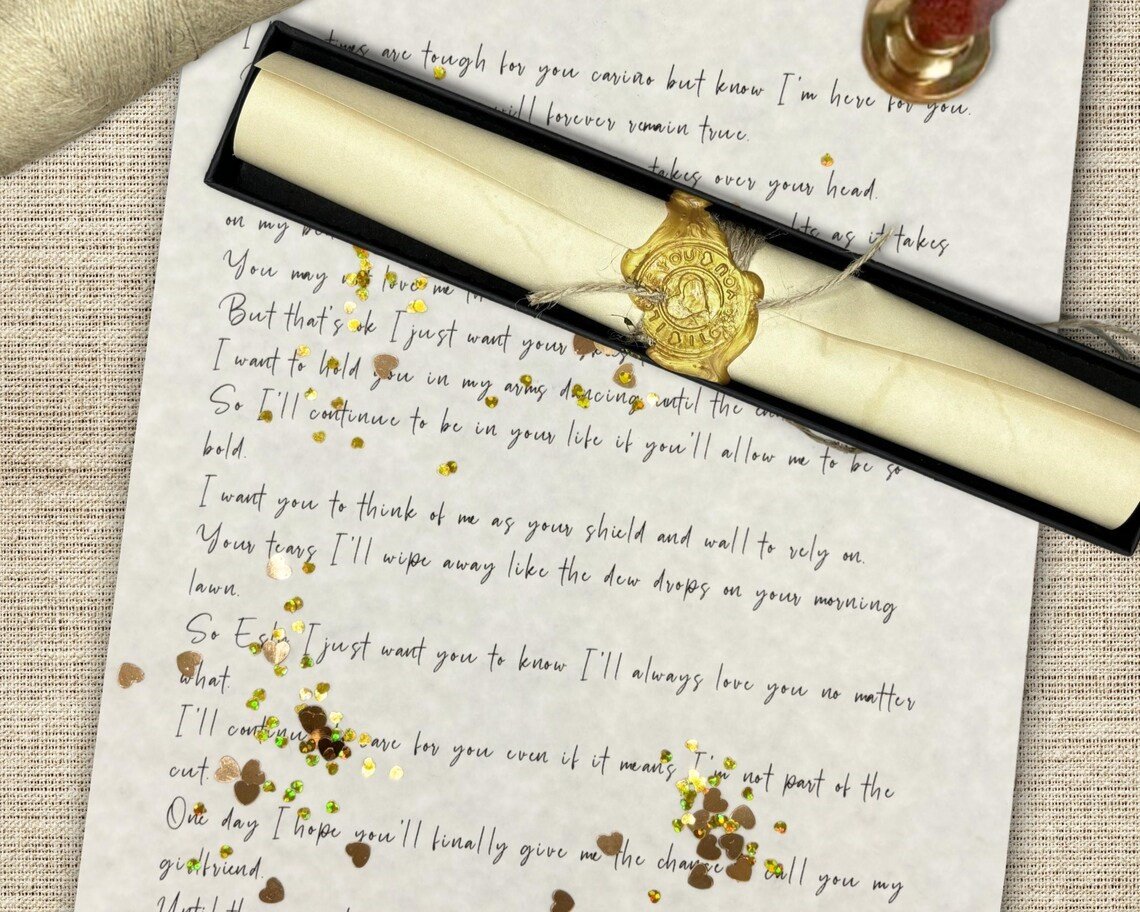 I times are tough for you cariño but know I'm here for you.
will forever remain true.
takes over your head.
as it takes
on my
You may not love me
But that's ok I just want your
I want to hold you in my arms dancing until the
So I'll continue to be in your life if you'll allow me to be so
bold.
I want you to think of me as your shield and wall to rely on.
Your tears I'll wipe away like the dew drops on your morning
lawn.
So I just want you to know I'll always love you no matter
what.
I'll continue care for you even if it means I'm not part of the
cut.
One day I hope you'll finally give me the chance call you my
girlfriend.
Until
YOU